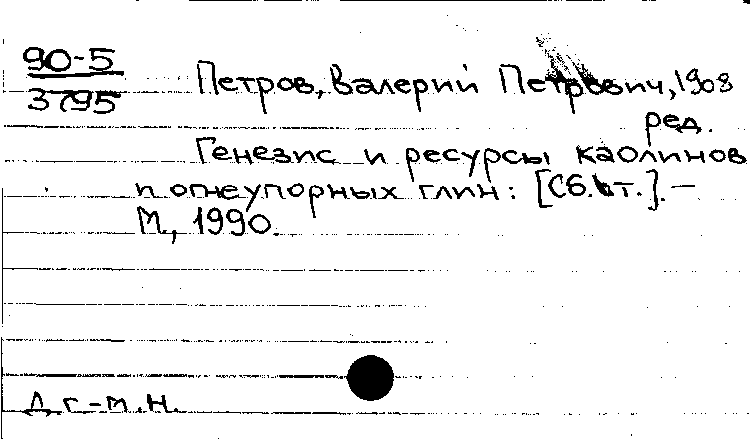 90-5
3795
Петров, Валерий Петрович, 1908
ред.
Генезис и ресурсы каолинов
и огнеупорных глин: [Сб. ст.]. —
М., 1990.
Д. г.-м. н.